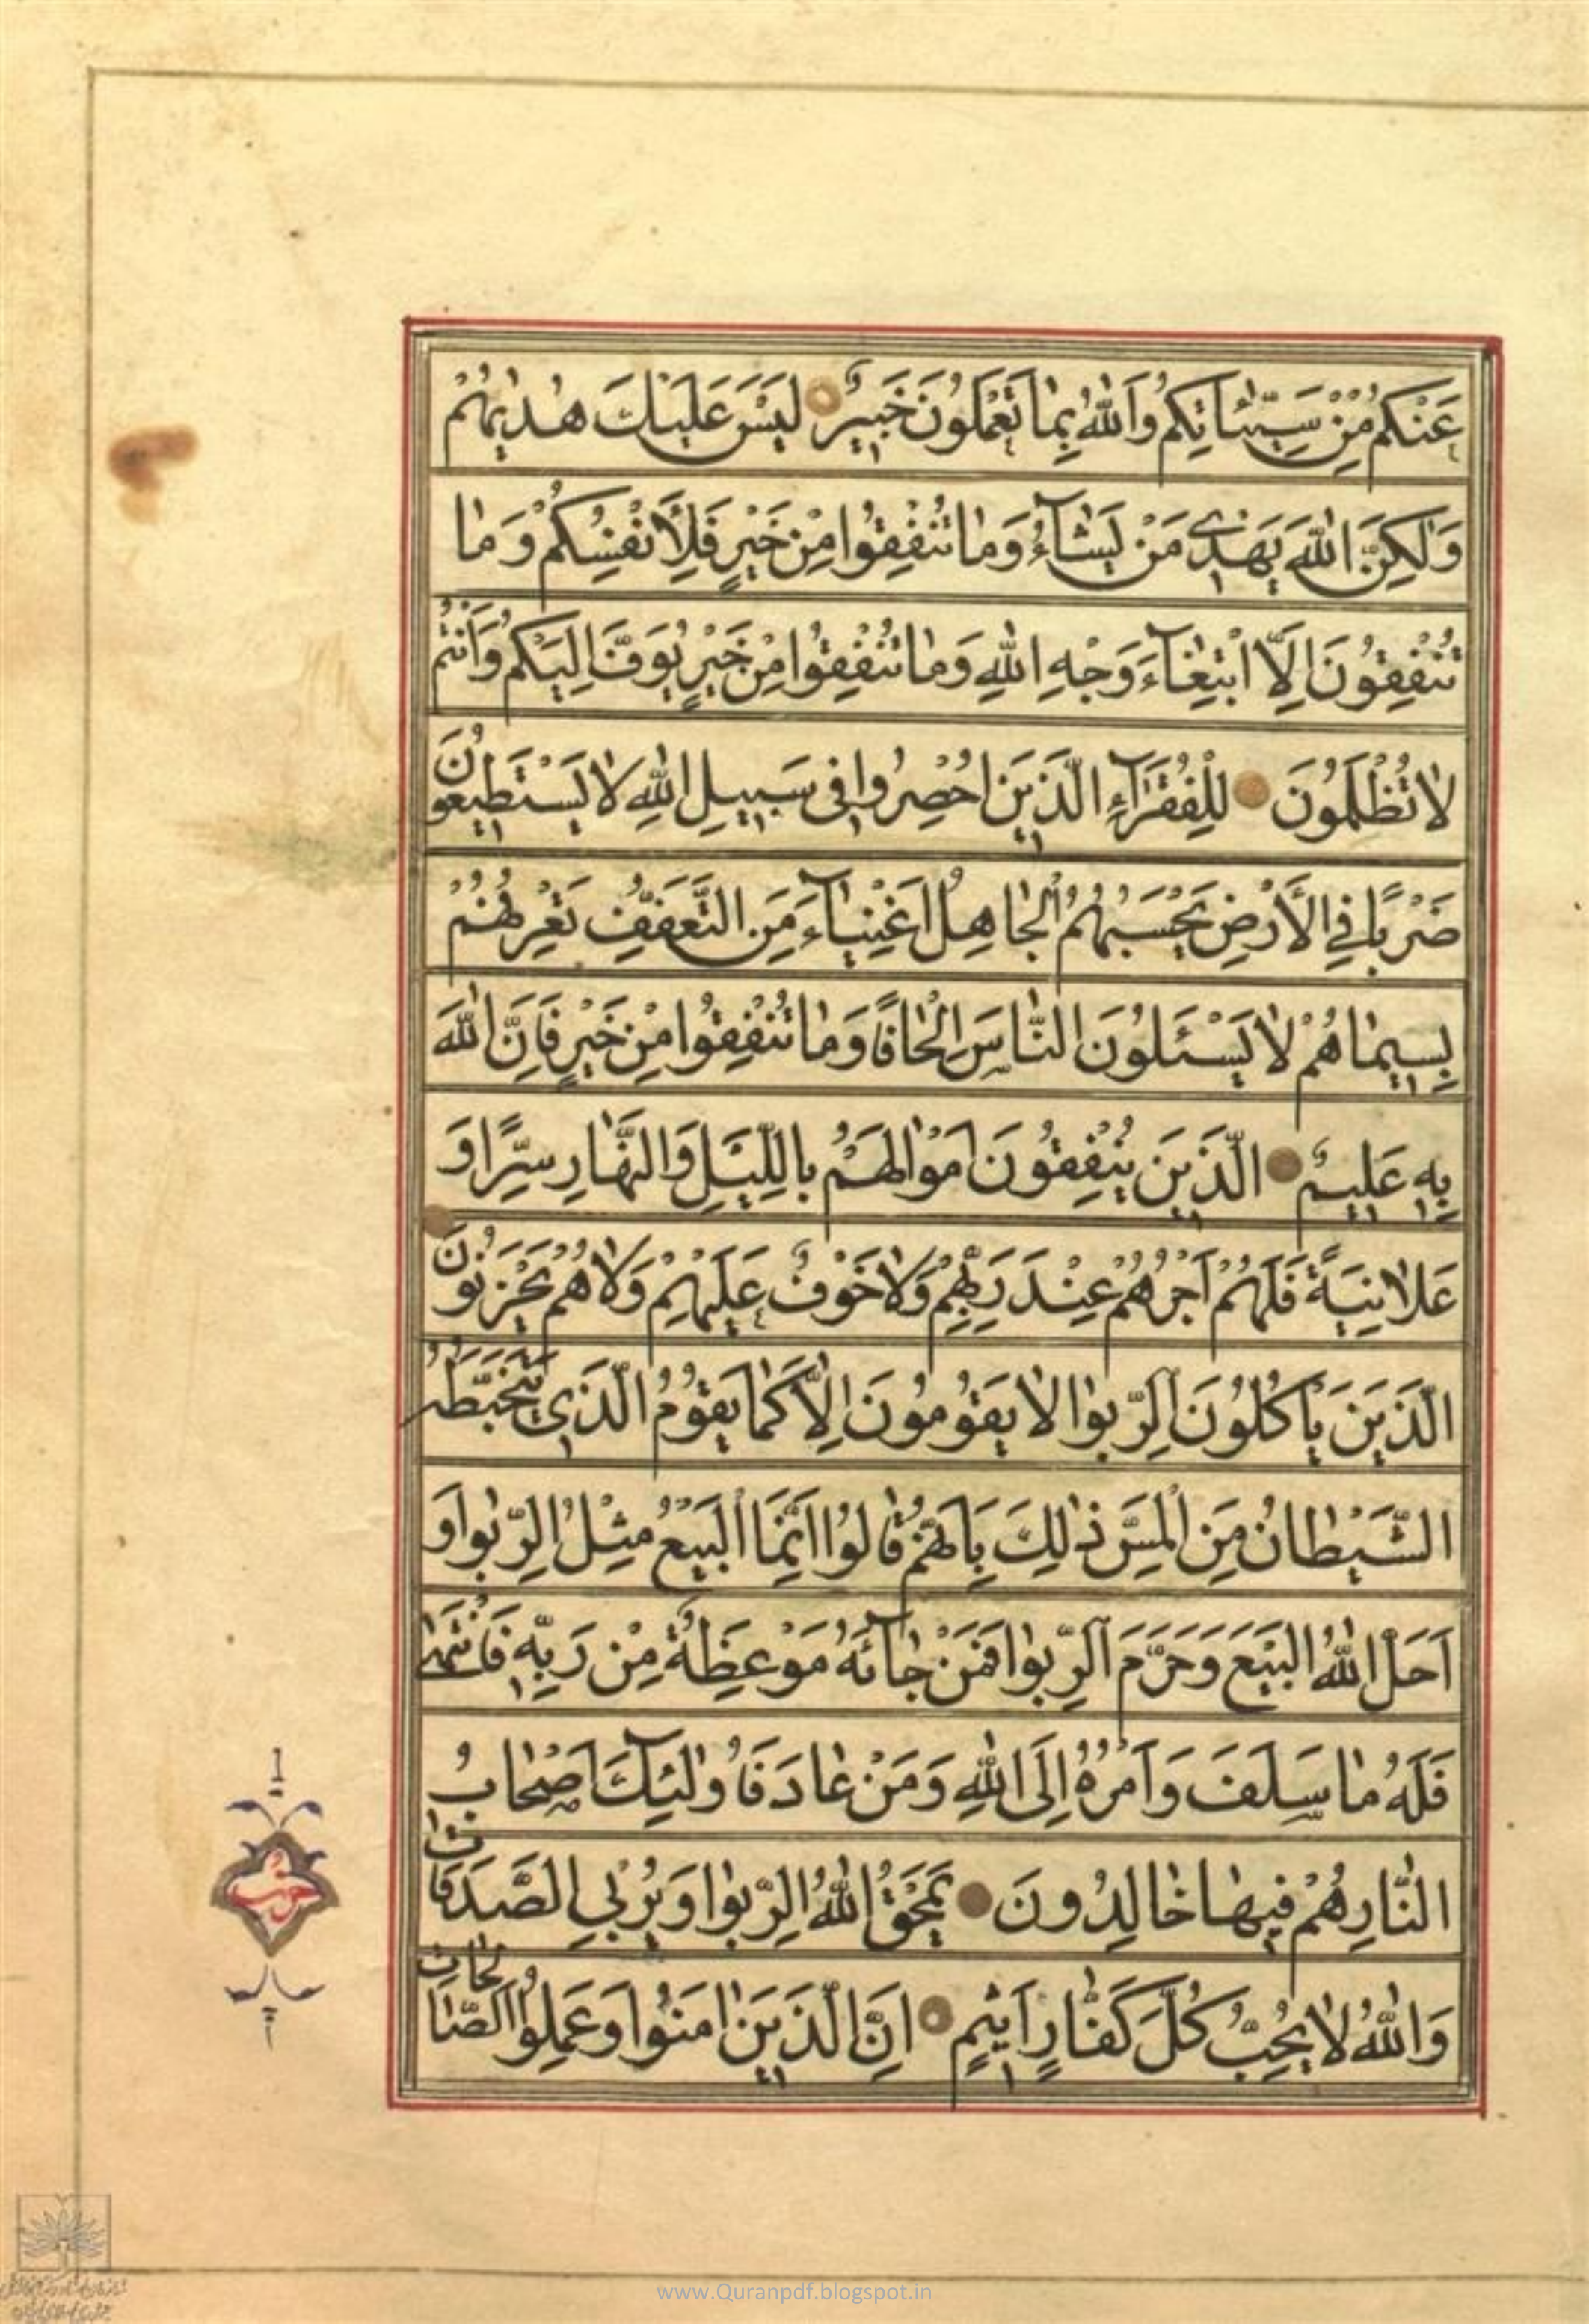 عَنْكُمْ مِنْ سَيِّئَاتِكُمْ وَاللّٰهُ بِمٰا تَعْمَلُونَ خَبيٖرٌ لَيْسَ عَلَيْكَ هُدٰيهُمْ
وَلٰكِنَّ اللّٰهَ يَهْدٖي مَنْ يَشٰآءُ وَمٰا تُنْفِقُوا مِنْ خَيْرٍ فَلِأَنْفُسِكُمْ وَمٰا
تُنْفِقُونَ اِلَّا ابْتِغٰآءَ وَجْهِ اللّٰهِ وَمٰا تُنْفِقُوا مِنْ خَيْرٍ يُوَفَّ اِلَيْكُمْ وَاَنْتُمْ
لاٰ تُظْلَمُونَ لِلْفُقَرَآءِ الَّذٖينَ اُحْصِرُوا فٖى سَبٖيلِ اللّٰهِ لاٰ يَسْتَطٖيعُونَ
ضَرْبًا فِي الْأَرْضِ يَحْسَبُهُمُ الْجٰاهِلُ اَغْنِيٰآءَ مِنَ التَّعَفُّفِ تَعْرِفُهُمْ
بِسٖيمٰاهُمْ لاٰ يَسْئَلُونَ النّٰاسَ اِلْحٰافًا وَمٰا تُنْفِقُوا مِنْ خَيْرٍ فَاِنَّ اللّٰهَ
بِهٖ عَلٖيمٌ الَّذٖينَ يُنْفِقُونَ اَمْوٰالَهُمْ بِاللَّيْلِ وَالنَّهٰارِ سِرًّا وَ
عَلاٰنِيَةً فَلَهُمْ اَجْرُهُمْ عِنْدَ رَبِّهِمْ وَلاٰ خَوْفٌ عَلَيْهِمْ وَلاٰ هُمْ يَحْزَنُونَ
الَّذٖينَ يَأْكُلُونَ الرِّبٰوا لاٰ يَقُومُونَ اِلَّا كَمٰا يَقُومُ الَّذٖي يَتَخَبَّطُهُ
الشَّيْطٰانُ مِنَ الْمَسِّ ذٰلِكَ بِاَنَّهُمْ قٰالُوا اِنَّمَا الْبَيْعُ مِثْلُ الرِّبٰوا وَ
اَحَلَّ اللّٰهُ الْبَيْعَ وَحَرَّمَ الرِّبٰوا فَمَنْ جٰآئَهُ مَوْعِظَةٌ مِنْ رَبِّهٖ فَانْتَهٰى
فَلَهُ مٰا سَلَفَ وَاَمْرُهُ اِلَى اللّٰهِ وَمَنْ عٰادَ فَاُولٰٓئِكَ اَصْحٰابُ
النّٰارِ هُمْ فٖيهٰا خٰالِدُونَ يَمْحَقُ اللّٰهُ الرِّبٰوا وَيُرْبِي الصَّدَقٰاتِ
وَاللّٰهُ لاٰ يُحِبُّ كُلَّ كَفّٰارٍ اَثٖيمٍ اِنَّ الَّذٖينَ اٰمَنُوا وَعَمِلُوا الصّٰالِحٰاتِ
حزب
www.Quranpdf.blogspot.in